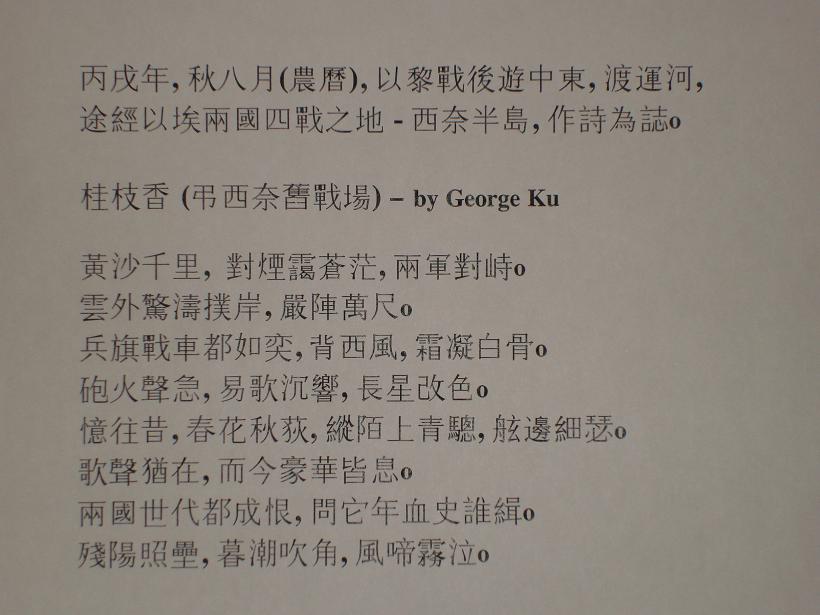 丙戌年, 秋八月(農曆), 以黎戰後遊中東, 渡運河,
途經以埃兩國四戰之地 - 西奈半島, 作詩為誌o
桂枝香 (弔西奈舊戰場) – by George Ku
黃沙千里, 對煙靄蒼茫, 兩軍對峙o
雲外驚濤撲岸, 嚴陣萬尺o
兵旗戰車都如奕, 背西風, 霜凝白骨o
砲火聲急, 易歌沉響, 長星改色o
憶往昔, 春花秋荻, 縱陌上青驄, 舷邊細瑟o
歌聲猶在, 而今豪華皆息o
兩國世代都成恨, 問它年血史誰緝o
殘陽照壘, 暮潮吹角, 風啼霧泣o